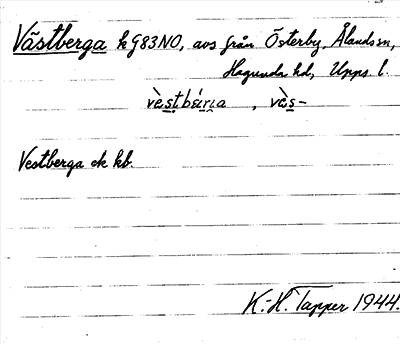 Västberga k G83NO, avs från Österby, Ålands sn,
Hagunda hd, Upps. l.
vä̀stbária , väs-
Vestberga ek kb.
K.-H. Tapper 1944.